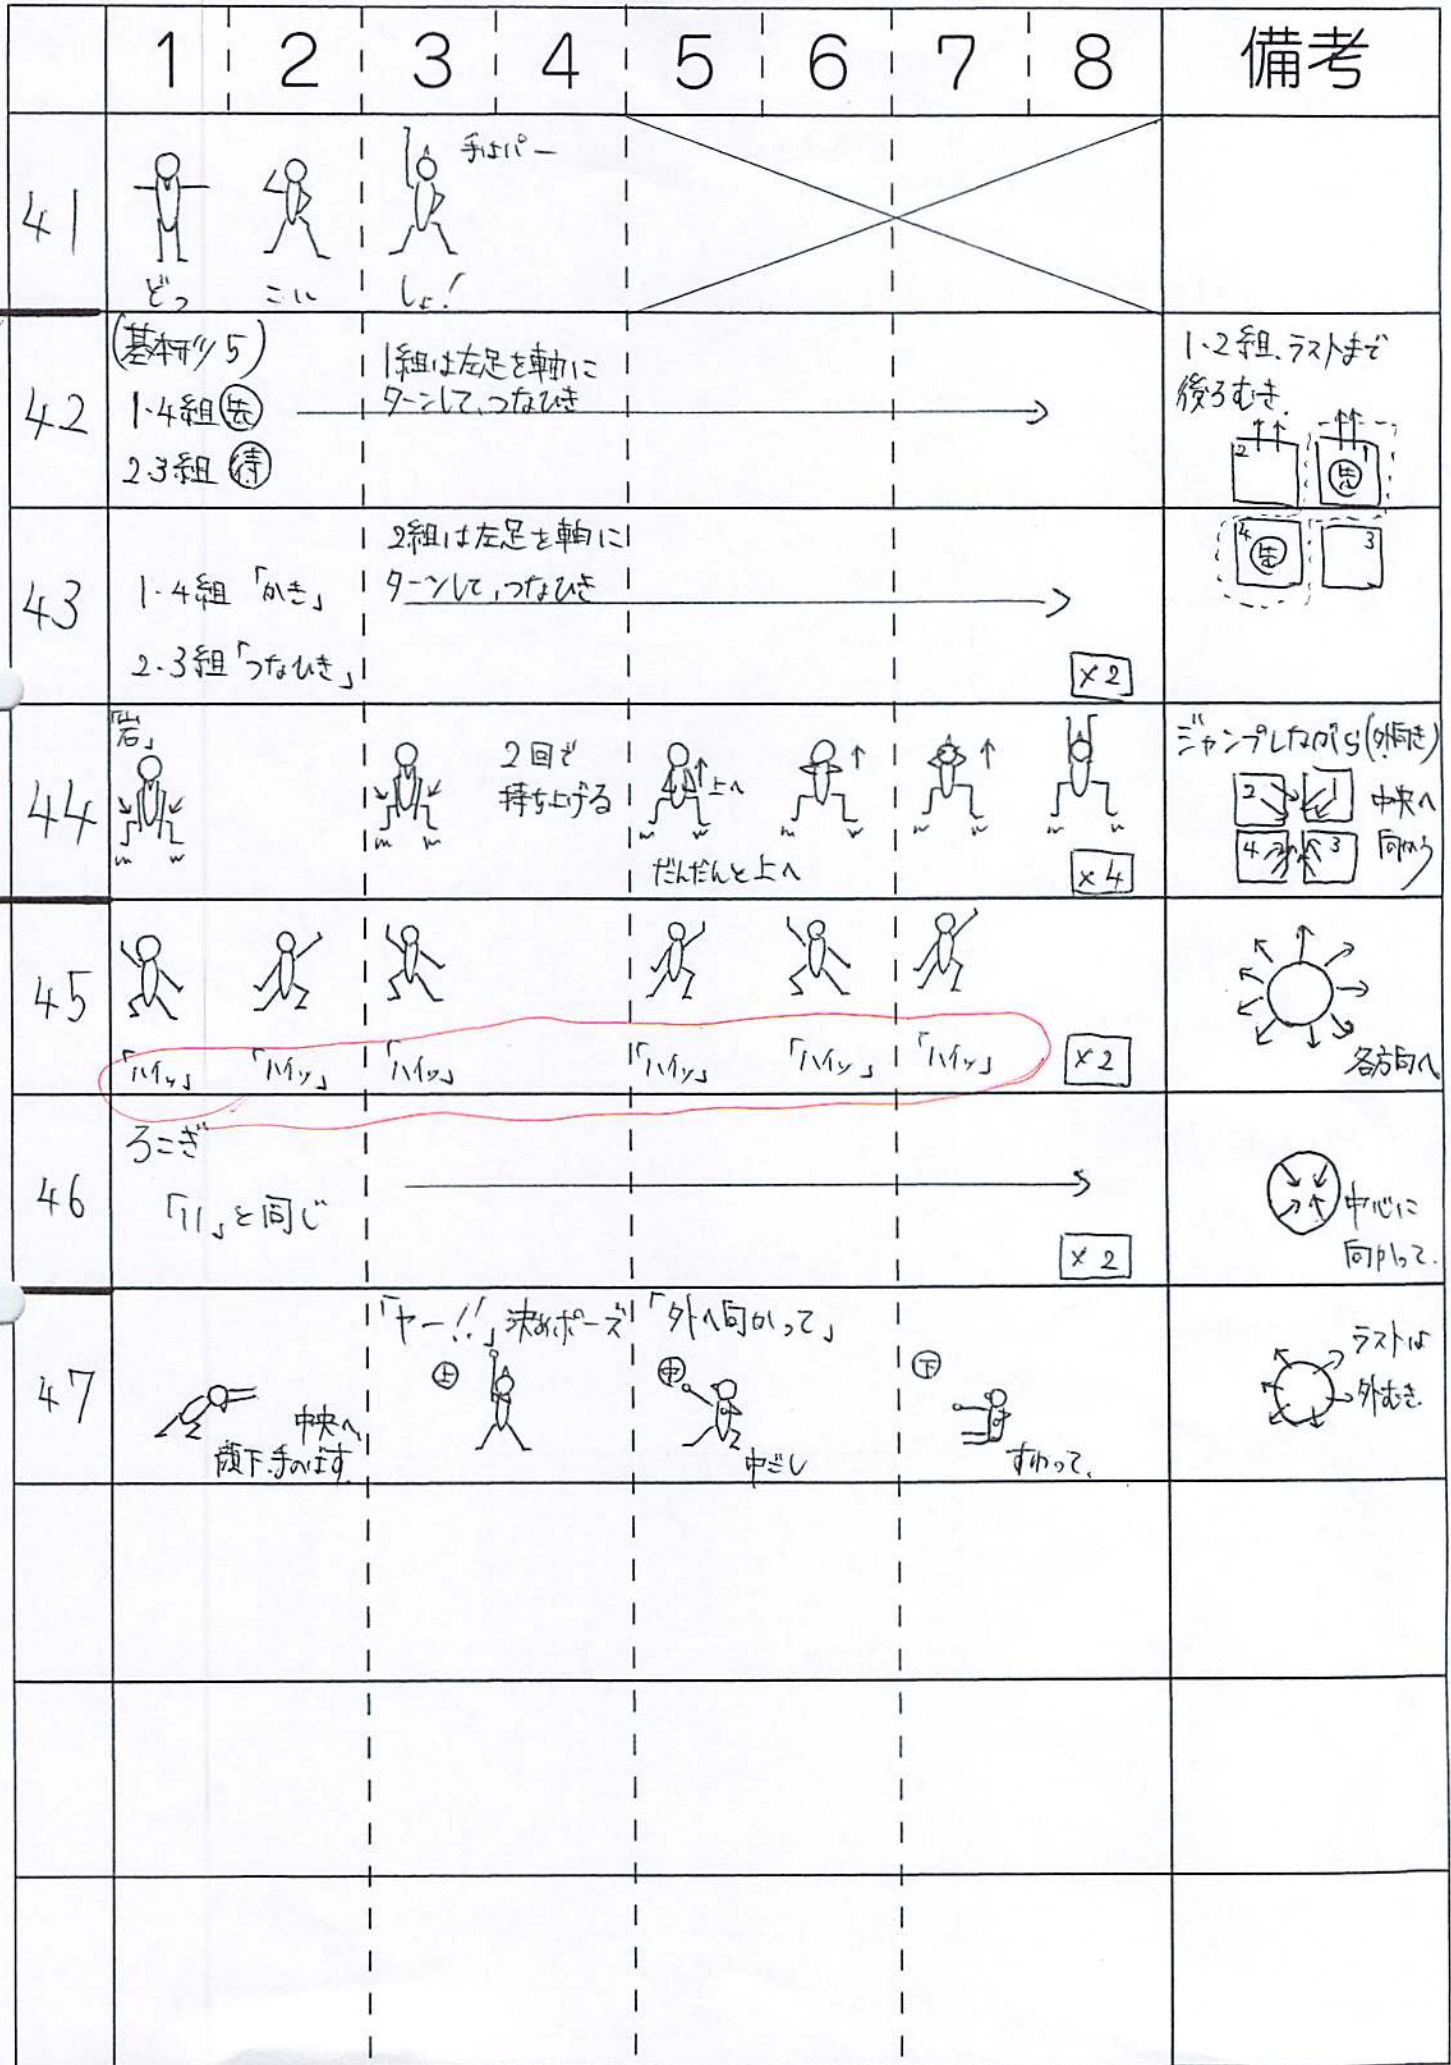 1 2 3 4 5 6 7 8 備考
41
手はパー
どっ こい しょ!
42
(基本形 5)
1・4組 先
2・3組 待
1組は左足を軸に
ターンして、つなひき
1・2組、ラストまで
後ろむき.
2 1 先
43
1・4組「かき」
2・3組「つなひき」
2組は左足を軸に
ターンして、つなひき
×2
4 先 3
44
「岩」
2回で
持ち上げる
上へ
だんだんと上へ
×4
ジャンプしながら(外向き)
2 1
4 3
中央へ
向かう
45
「ハイッ」 「ハイッ」 「ハイッ」 「ハイッ」 「ハイッ」 「ハイッ」
×2
各方向へ
46
ろこぎ
「11」と同じ
×2
中心に
向かって.
47
中央へ
顔下.手のばす.
「ヤー!!」決めポーズ
上
「外へ向かって」
中
中ごし
下
すわって、
ラストは
外むき.